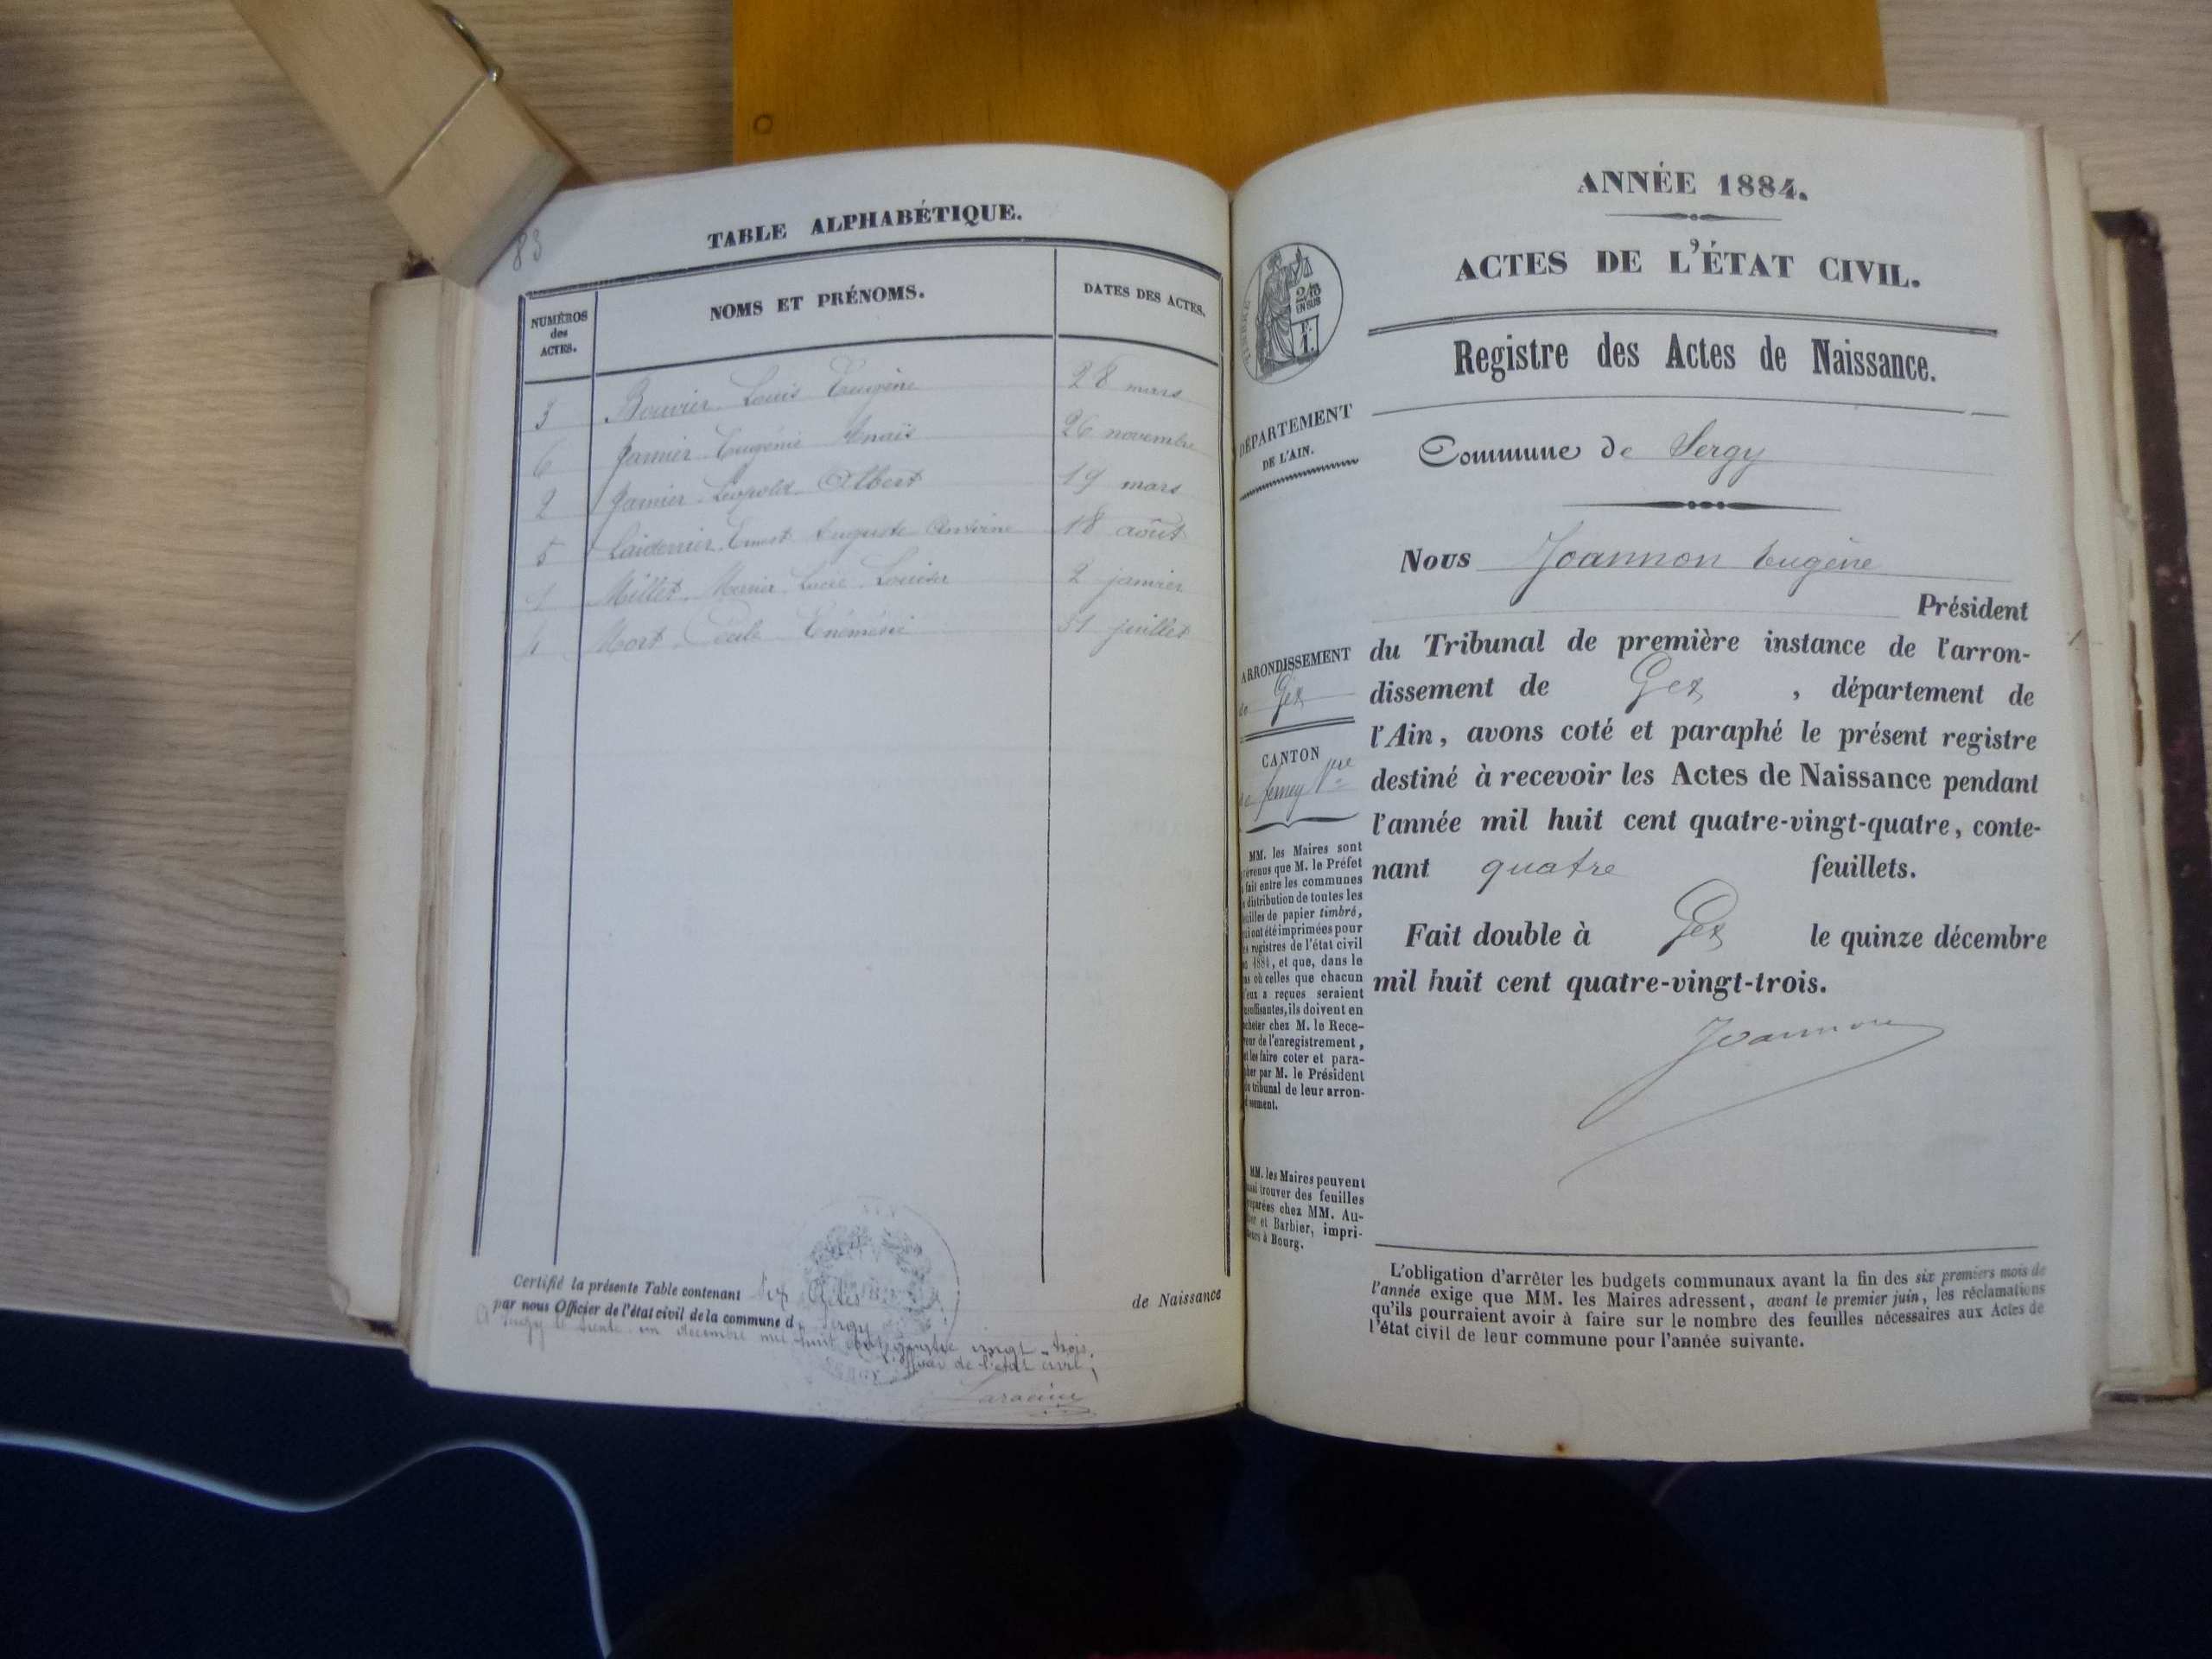 83
TABLE ALPHABÉTIQUE.
NUMÉROS
des
ACTES.
NOMS ET PRÉNOMS.
DATES DES ACTES.
3 Bouvier Louis Eugène 28 mars
6 Janier Eugénie Anaïs 26 novembre
2 Janier Léopold Albert 19 mars
5 Ernest Auguste Antoine 18 août
1 Millet Lucie Louisa 2 janvier
4 Mort Cécile 31 juillet
Certifié la présente Table contenant Six Actes de Naissance
par nous Officier de l'état civil de la commune d Sergy
A Sergy le trente un décembre mil huit cent quatre vingt-trois.
L'officier de l'état civil,
ANNÉE 1884.
ACTES DE L'ÉTAT CIVIL.
TIMBRE
2/10
EN SUS
F.
1.
Registre des Actes de Naissance.
DÉPARTEMENT
DE L'AIN.
Commune de Sergy
Nous Joannon Eugène
Président
du Tribunal de première instance de l'arron-
dissement de Gex, département de
l'Ain, avons coté et paraphé le présent registre
destiné à recevoir les Actes de Naissance pendant
l'année mil huit cent quatre-vingt-quatre, conte-
nant quatre feuillets.
Fait double à Gex le quinze décembre
mil huit cent quatre-vingt-trois.
Joannon
ARRONDISSEMENT
de Gex
CANTON
de Ferney Vre
MM. les Maires sont
prévenus que M. le Préfet
a fait entre les communes
la distribution de toutes les
feuilles de papier timbré,
qui ont été imprimées pour
les registres de l'état civil
en 1884, et que, dans le
cas où celles que chacun
d'eux a reçues seraient
insuffisantes, ils doivent en
acheter chez M. le Rece-
veur de l'enregistrement,
et les faire coter et para-
pher par M. le Président
du tribunal de leur arron-
dissement.
MM. les Maires peuvent
aussi trouver des feuilles
préparées chez MM. Au-
et Barbier, impri-
meurs à Bourg.
L'obligation d'arrêter les budgets communaux avant la fin des six premiers mois de
l'année exige que MM. les Maires adressent, avant le premier juin, les réclamations
qu'ils pourraient avoir à faire sur le nombre des feuilles nécessaires aux Actes de
l'état civil de leur commune pour l'année suivante.